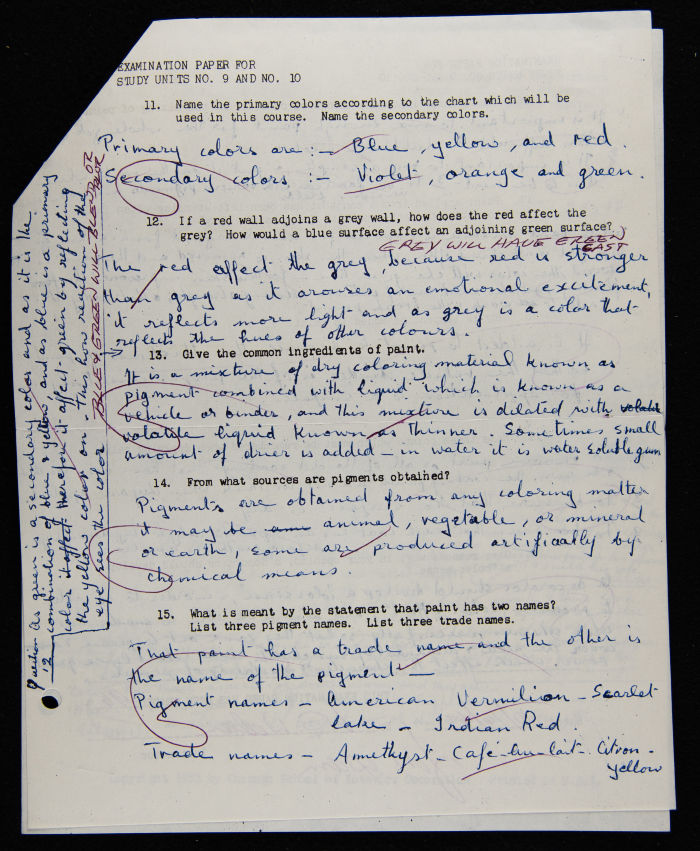 EXAMINATION PAPER FOR
STUDY UNITS NO. 9 AND NO. 10
11. Name the primary colors according to the chart which will be
used in this course. Name the secondary colors.
Primary colors are :- Blue, yellow, and red.
Secondary colors :- Violet, orange and green.
12. If a red wall adjoins a grey wall, how does the red affect the
grey? How would a blue surface affect an adjoining green surface?
GREY WILL HAVE GREEN
CAST
The red affect the grey, because red is stronger
than grey as it arouses an emotional excitement,
it reflects more light and as grey is a color that
reflects the hues of other colours.
13. Give the common ingredients of paint.
It is a mixture of dry coloring material known as
pigment combined with liquid which is known as a
vehicle or binder, and this mixture is dilated with volatile
volatile liquid known as thinner Sometimes small
amount of drier is added - in water it is water soluble gum
14. From what sources are pigments obtained?
Pigments are obtained from any coloring matter
it may be animal, vegetable, or mineral
or earth, some are produced artificially by
chemical means.
15. What is meant by the statement that paint has two names?
List three pigment names. List three trade names.
That paint has a trade name and the other is
the name of the pigment -
Pigment names - American Vermilion - Scarlet
lake - Indian Red.
Trade names - Amethyst - Café-au-lait - Citron -
yellow
Question As green is a secondary color and as it is the
12 combination of blue & yellow, and as blue is a primary
color it affect therefore it affect green by reflecting
the yellow color on - This how reaction of the
eye sees the color
BLUE & GREEN WILL BLEND OR